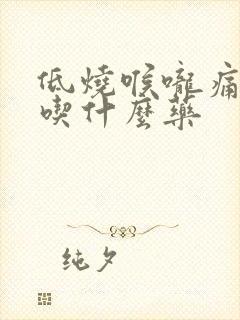 低燒喉嚨痛
喫什麼藥
純夕